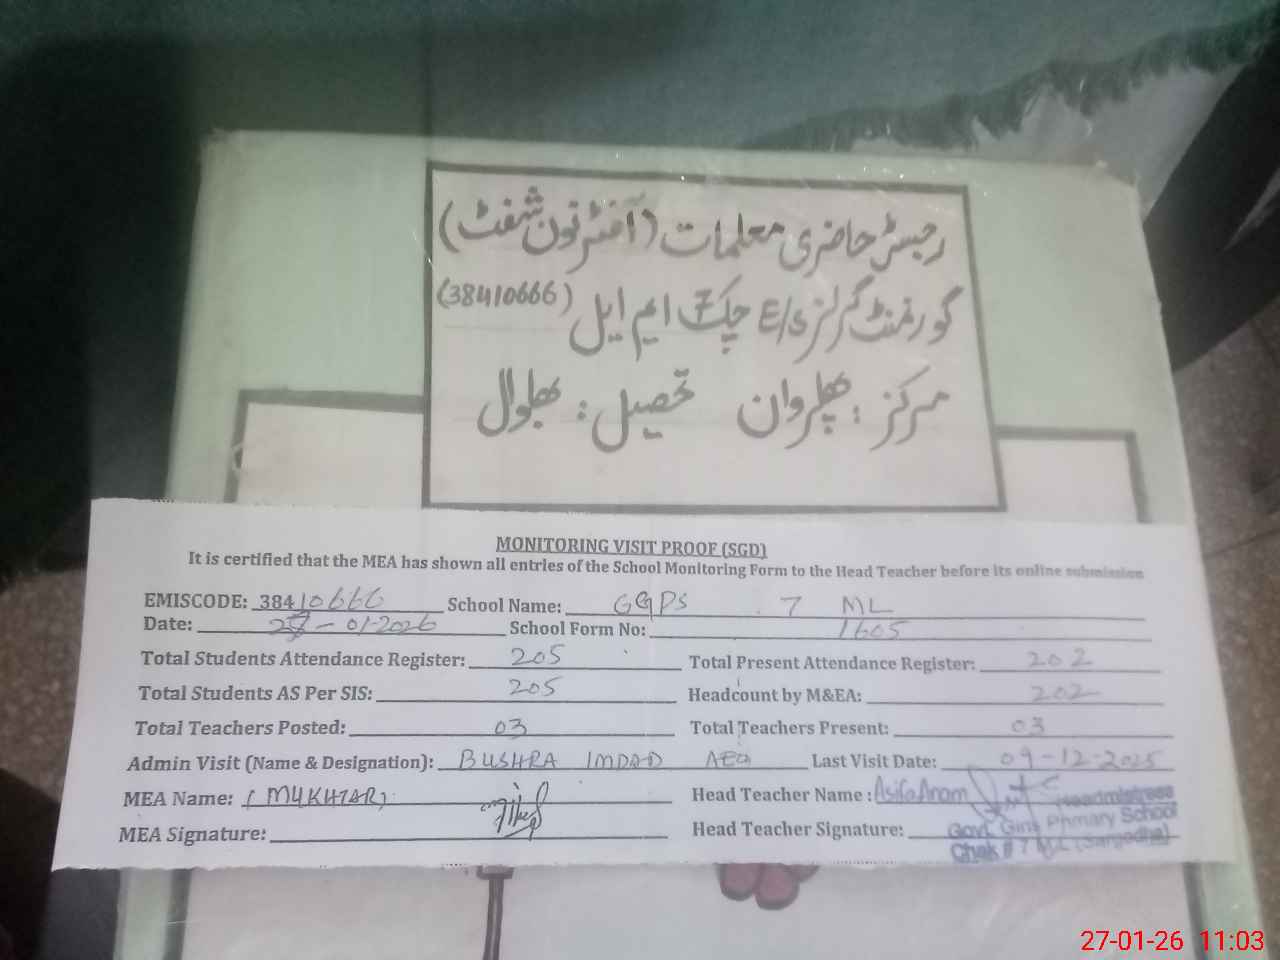 رجسٹر حاضری معلمات (آفٹر نون شفٹ)
گورنمنٹ گرلز E/S چک 7 ایم ایل (38410666)
مرکز: پھلروان تحصیل: بھلوال
MONITORING VISIT PROOF (SGD)
It is certified that the MEA has shown all entries of the School Monitoring Form to the Head Teacher before its online submission
EMISCODE: 38410666 School Name: GGPS 7 ML
Date: 27-01-2026 School Form No: 1605
Total Students Attendance Register: 205 Total Present Attendance Register: 202
Total Students AS Per SIS: 205 Headcount by M&EA: 202
Total Teachers Posted: 03 Total Teachers Present: 03
Admin Visit (Name & Designation): BUSHRA IMDAD AEO Last Visit Date: 09-12-2025
MEA Name: (MUKHTAR) Head Teacher Name: Asifa Anam
MEA Signature: Head Teacher Signature:
Headmistress
Govt. Girls Primary School
Chak # 7 M.L (Sargodha)
27-01-26 11:03